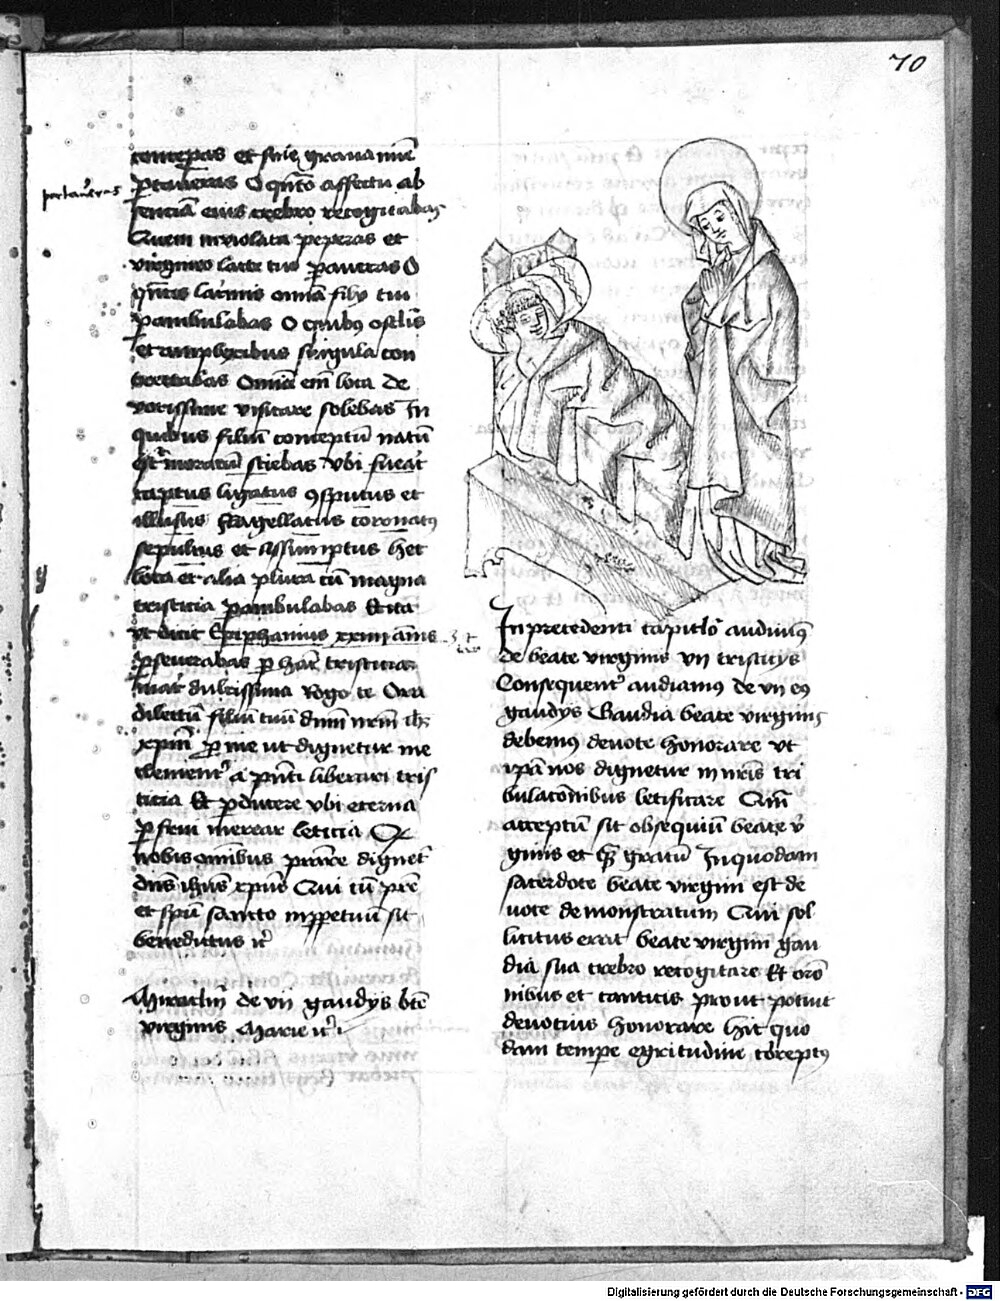 70
conceperas et sine grauamine
portaueras
portaueras O qnto affectu ab
senciam eius crebro recogitabas
Quem inuiolata pepereras et
virgineo lacte tuo paueras O
quantis lacrimis omnia filii tui
pambulabas O quibus osculis
et amplexibus singula con
trectabas Omnia eni loca de
votissime visitare solebas In
quibus filiu conceptu natu
sciebas vbi fuerat
captus ligatus 9sputus et
illusus flagellatus coronatus
sepultus et assumptus hec
loca et alia plura cu magna
tristicia pambulabas Et ita
vt dicit Epiphanius xxiiii annis
pseuerabas p hac tristicia
mar dulcissima Rogo te Ora
dilectu filiu tuu dnm nrm ih
xpm p me ut dignetur me
clementer a pnti liberari tris
ticia Et pducere vbi eterna
pfrui merear leticia Q
nobis omnibus pstare dignet
dns ihus xpus Qui cu pre
et spu sancto inppetuu sit
benedictus
Miraclm de vii gaudys bte
virginis Marie
In precedenti capitlo audiuim9
de beate virginis vii tristiciis
Consequent audiamus de vii ei9
gaudys Gaudia beate virginis
debemus deuote honorare vt
ipa nos dignetur in nris tri
bulaconibus letificare Qm
acceptu sit obsequiu beate v
ginis et qm gratu In quodam
sacerdote beate virgini est de
uote demonstratum Qui sol
licitus erat beate virgini gau
dia sua crebro recogitare Et oro
nibus et canticis prout potuit
deuotius honorare Hic quo
dam tempe egritudine corept9
Digitalisierung gefördert durch die Deutsche Forschungsgemeinschaft - DFG